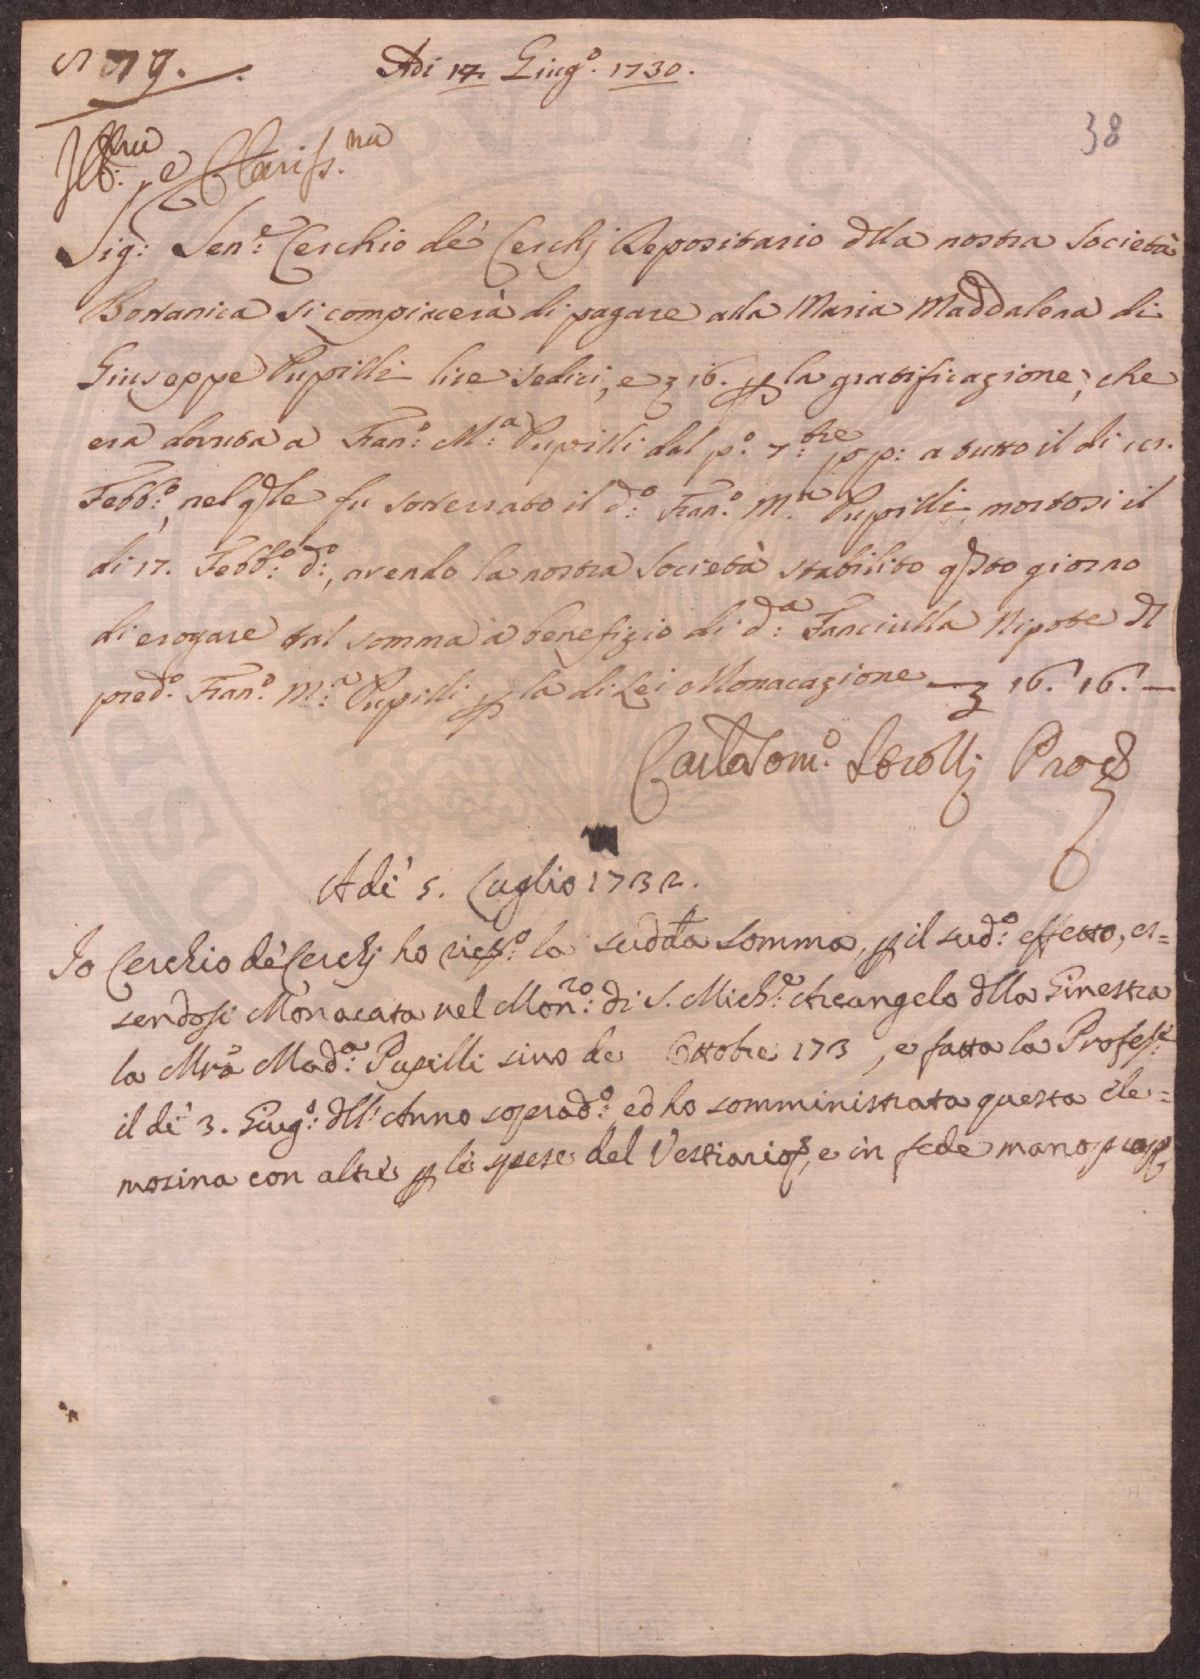 Adi 17. Giug.º 1730.
38
Ill.mo e Clariss.mo
Sig: Sen:e Cerchio dè Cerchj Depositario dlla nostra Società
Bottanica si compiacerà di pagare alla Maria Maddalena di
Giuseppe Pupilli lire sedici, e 16. p la gratificazione, che
era dovuta a Fran:º M:a Pupilli dal p:º 7:bre pp: a tutto il di
Febb:º, nel qle fu sotterrato il d:º Fran:º M:a Pupilli mortosi il
di 17. Febb:º d:º, avendo la nostra Società stabilito qsto giorno
di erogare tal somma a benefizio di d:a Fanciulla Nipote dl
pred:º Fran:º M:a Pupilli p la di Lei Monacazione — 16. 16. —
Adi 5. Luglio 1732.
Io Cerchio dè Cerchj ho la sudda somma, p il sud:º effetto, es=
sendosi Monacata nel Mon:ro di S. Mich:e Arcangelo dlla Ginestra
la Mra Mad:a Pupilli sino de Ottobre 173 , e fatta la Profess:e
il dì 3. Giug:º dll' Anno soprad:º, ed ho somministrata questa ele=
mosina con altre p le spese del Vestiario, e in fede mano